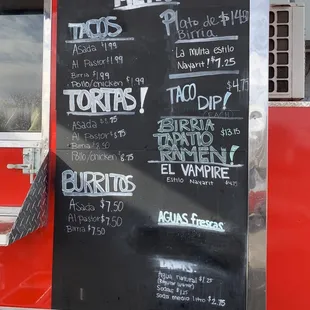 TACOS
Asada $1.99
Al Pastor $1.99
Birria $1.99
Pollo/chicken $1.99
TORTAS!
Asada
Al Pastor
Birria
Pollo/chicken
BURRITOS
Asada $7.50
Al pastor $7.50
Birria $7.50
Plato de $14.75
Birria
La Mulita estilo
Nayarit! $7.25
TACO $4.75
DIP!
BIRRIA $13.15
TAPATIO
RAMEN!
EL VAMPIRE
Estilo Nayarit
AGUAS frescas
Agua natural $1.25
Sodas $1.25
soda medio litro $2.75